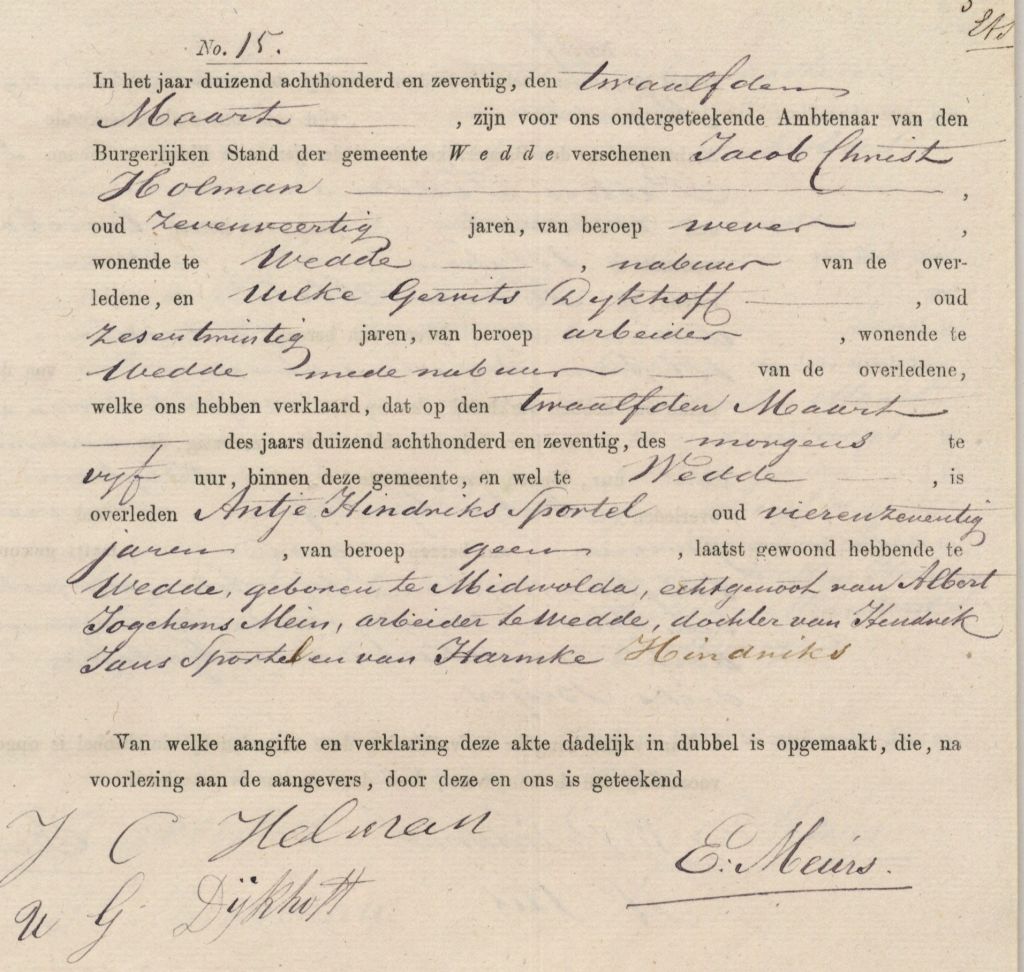 No. 15.
In het jaar duizend achthonderd en zeventig, den twaalfden
Maart, zijn voor ons ondergeteekende Ambtenaar van den
Burgerlijken Stand der gemeente Wedde verschenen Jacob Christ
Holman,
oud zevenveertig jaren, van beroep wever,
wonende te Wedde, nabuur van de over-
ledene, en Uilke Gerrits Dijkhoff, oud
zesentwintig jaren, van beroep arbeider, wonende te
Wedde mede nabuur van de overledene,
welke ons hebben verklaard, dat op den twaalfden Maart
des jaars duizend achthonderd en zeventig, des morgens te
vijf uur, binnen deze gemeente, en wel te Wedde, is
overleden Antje Hindriks Sportel oud vierenzeventig
jaren, van beroep geen, laatst gewoond hebbende te
Wedde, geboren te Midwolda, echtgenoot van Albert
Jogchems Mein, arbeider te Wedde, dochter van Hendrik
Jans Sportel en van Harmke Hindriks
Van welke aangifte en verklaring deze akte dadelijk in dubbel is opgemaakt, die, na
voorlezing aan de aangevers, door deze en ons is geteekend
J C Holman
E. Meurs.
U G Dijkhoff